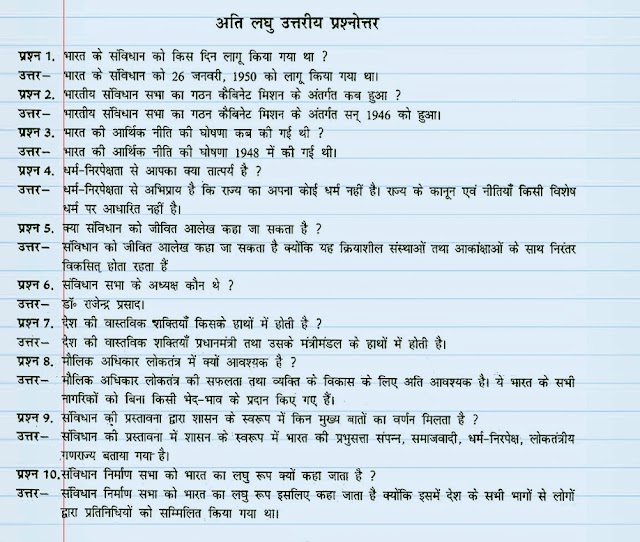 अति लघु उत्तरीय प्रश्नोत्तर
प्रश्न 1. भारत के संविधान को किस दिन लागू किया गया था ?
उत्तर– भारत के संविधान को 26 जनवरी, 1950 को लागू किया गया था।
प्रश्न 2. भारतीय संविधान सभा का गठन कैबिनेट मिशन के अंतर्गत कब हुआ ?
उत्तर– भारतीय संविधान सभा का गठन कैबिनेट मिशन के अंतर्गत सन् 1946 को हुआ।
प्रश्न 3. भारत की आर्थिक नीति की घोषणा कब की गई थी ?
उत्तर– भारत की आर्थिक नीति की घोषणा 1948 में की गई थी।
प्रश्न 4. धर्म-निरपेक्षता से आपका क्या तात्पर्य है ?
उत्तर– धर्म-निरपेक्षता से अभिप्राय है कि राज्य का अपना कोई धर्म नहीं है। राज्य के कानून एवं नीतियाँ किसी विशेष
धर्म पर आधारित नहीं है।
प्रश्न 5. क्या संविधान को जीवित आलेख कहा जा सकता है ?
उत्तर– संविधान को जीवित आलेख कहा जा सकता है क्योंकि यह क्रियाशील संस्थाओं तथा आकांक्षाओं के साथ निरंतर
विकसित् होता रहता हैं
प्रश्न 6. संविधान सभा के अध्यक्ष कौन थे ?
उत्तर– डॉ॰ राजेन्द्र प्रसाद।
प्रश्न 7. देश की वास्तविक शक्तियाँ किसके हाथों में होती है ?
उत्तर– देश की वास्तविक शक्तियाँ प्रधानमंत्री तथा उसके मंत्रीमंडल के हाथों में होती है।
प्रश्न 8. मौलिक अधिकार लोकतंत्र में क्यों आवश्यक है ?
उत्तर– मौलिक अधिकार लोकतंत्र की सफलता तथा व्यक्ति के विकास के लिए अति आवश्यक है। ये भारत के सभी
नागरिकों को बिना किसी भेद-भाव के प्रदान किए गए हैं।
प्रश्न 9. संविधान की प्रस्तावना द्वारा शासन के स्वरूप में किन मुख्य बातों का वर्णन मिलता है ?
उत्तर– संविधान की प्रस्तावना में शासन के स्वरूप में भारत की प्रभुसत्ता संपन्न, समाजवादी, धर्म-निरपेक्ष, लोकतंत्रीय
गणराज्य बताया गया है।
प्रश्न 10. संविधान निर्माण सभा को भारत का लघु रूप क्यों कहा जाता है ?
उत्तर– संविधान निर्माण सभा को भारत का लघु रूप इसलिए कहा जाता है क्योंकि इसमें देश के सभी भागों से लोगों
द्वारा प्रतिनिधियों को सम्मिलित किया गया था।